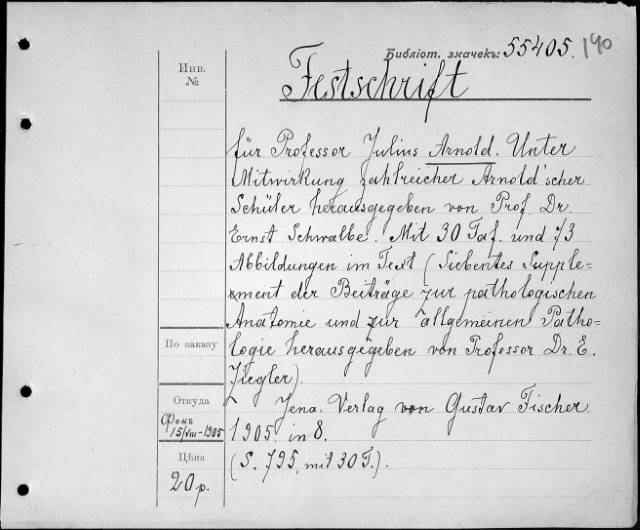 Библіот. значекъ: 55405. 190
Инв.
№
Festschrift
für Professor Julius Arnold. Unter
Mitwirkung zahlreicher Arnold'scher
Schüler herausgegeben von Prof. Dr.
Ernst Schwalbe. Mit 30 Taf. und 73
Abbildungen im Text (Siebentes Supple=
ment der Beiträge zur pathologischen
Anatomie und zur allgemeinen Patho-
logie herausgegeben von Professor Dr. E.
Ziegler).
По заказу
Jena. Verlag von Gustav Fischer
1905. in 8.
(S. 795, mit 30 T.).
Откуда
15/VIII-1905
Цѣна
20 р.